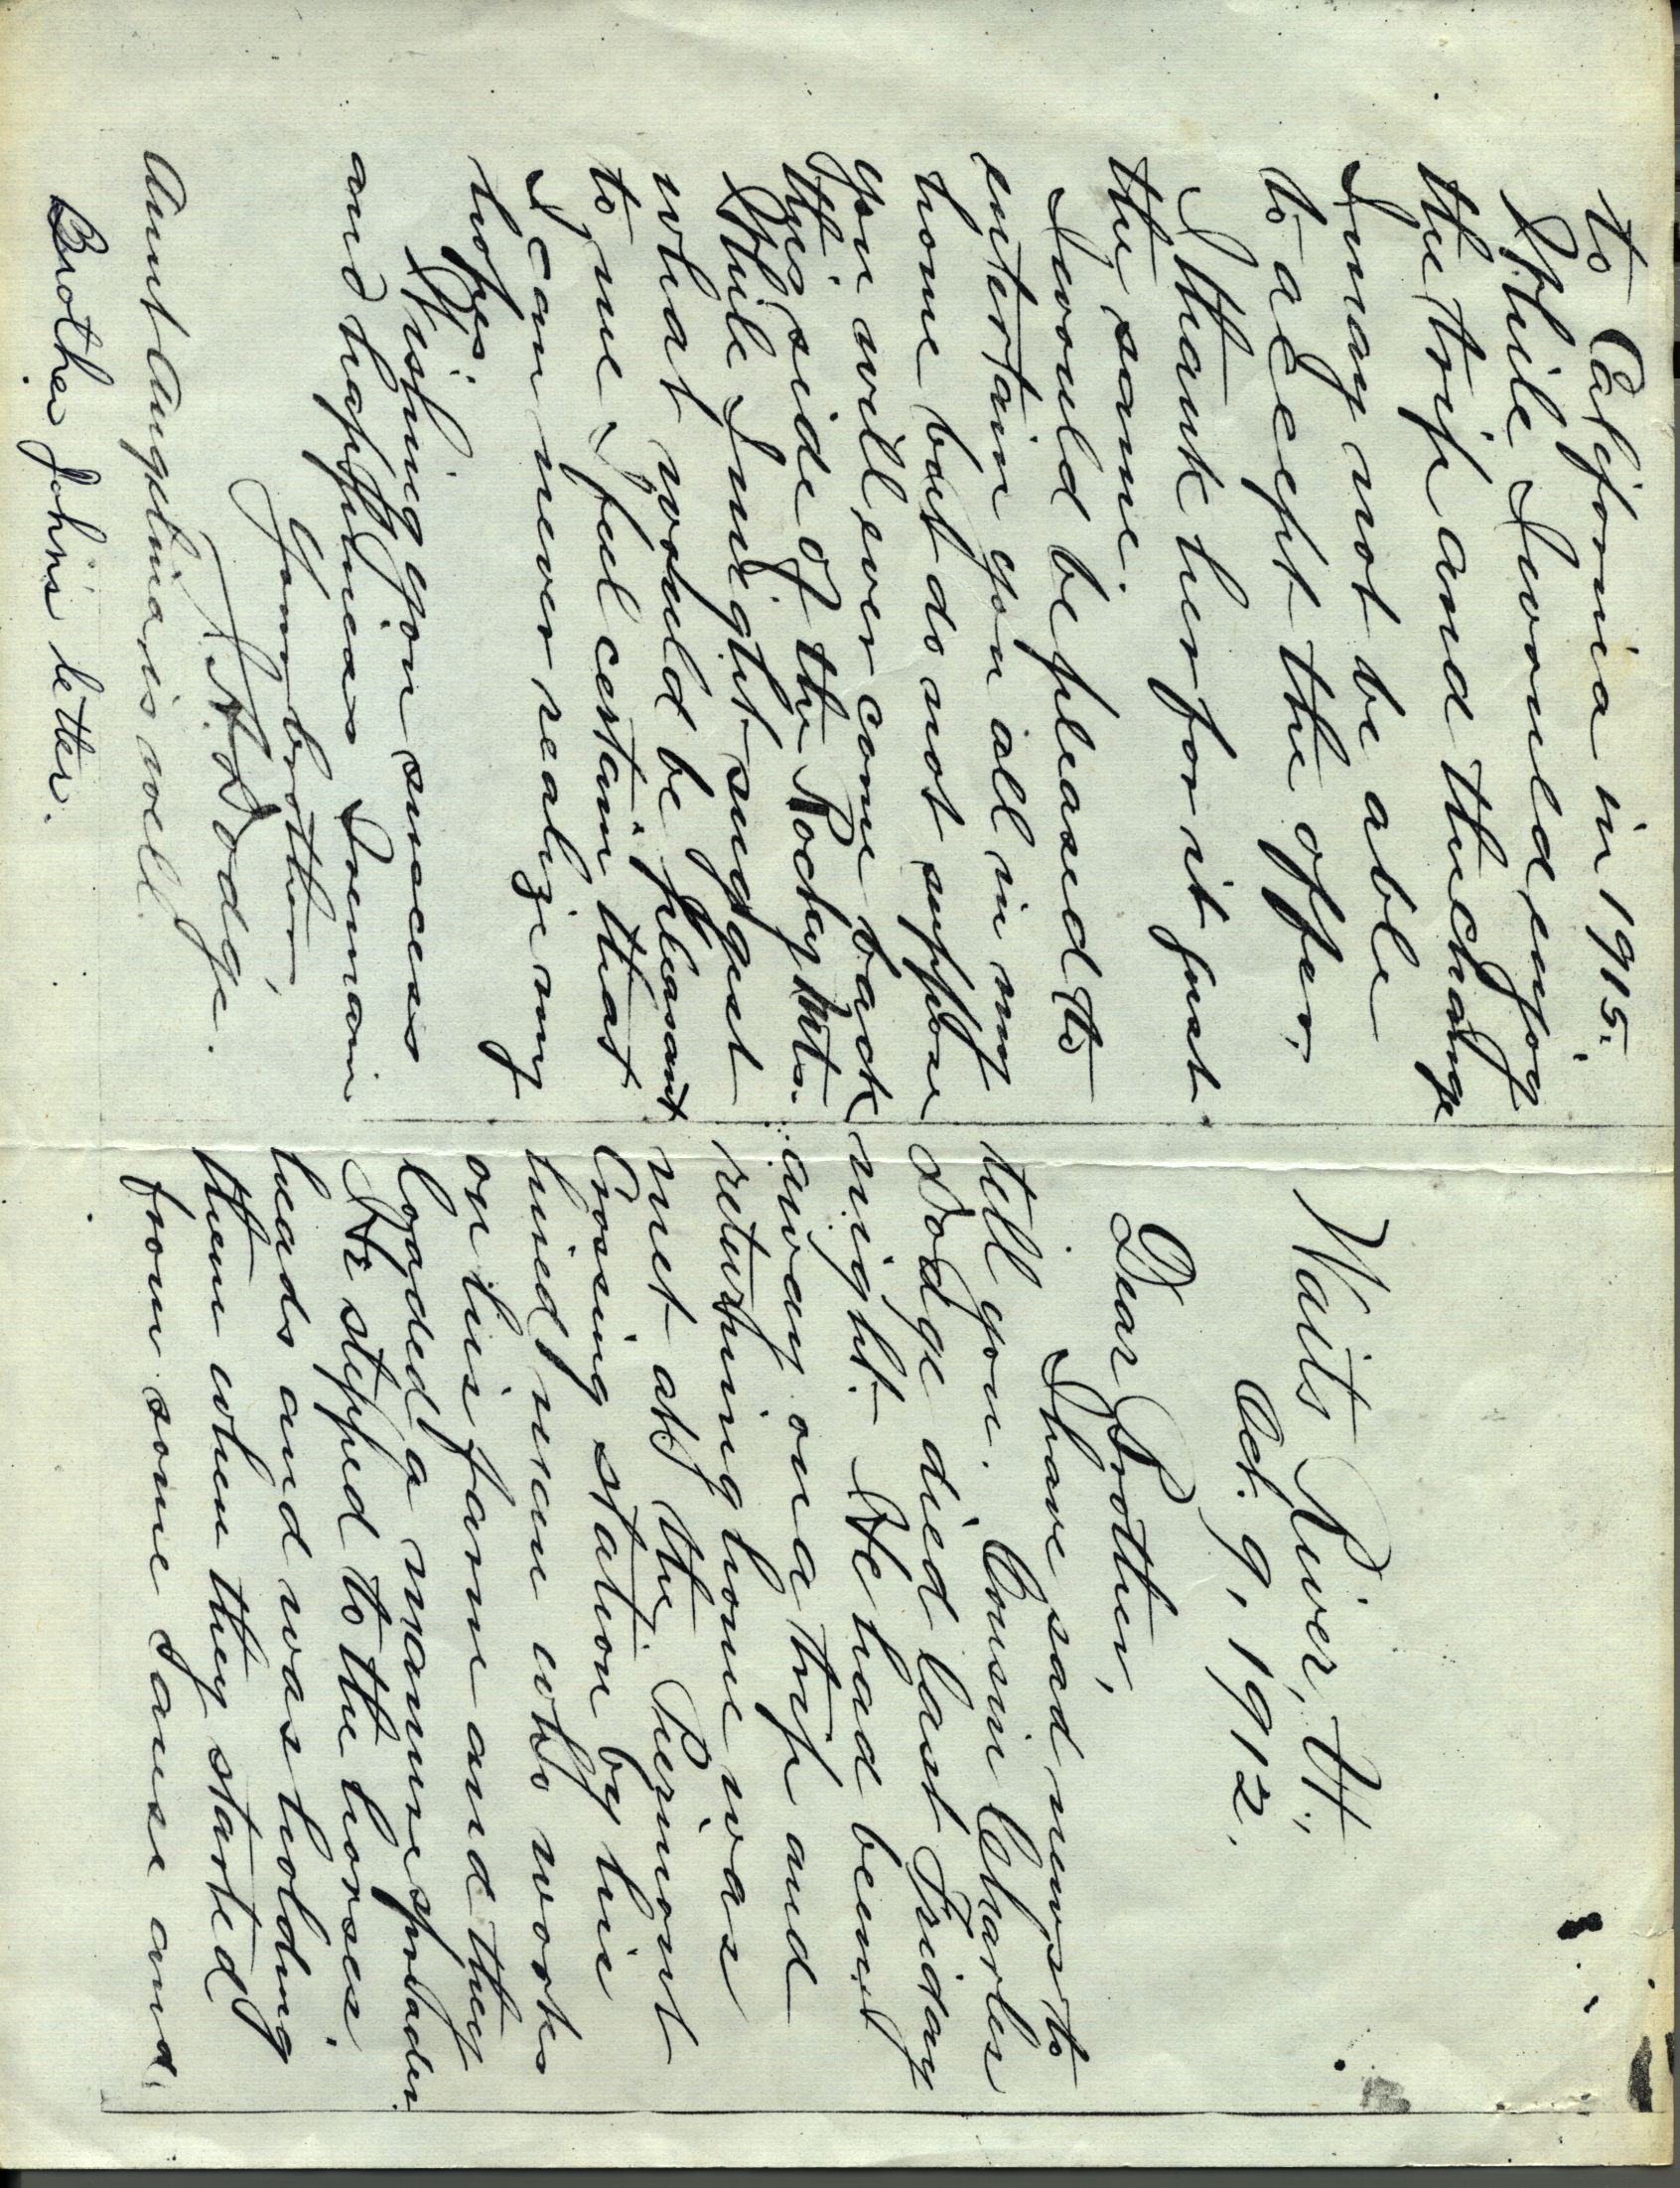 to California in 1915.
While I would enjoy
the trip and the change
I may not be able
to accept the offer.
I thank her for it just
the same.
I would be pleased to
entertain you all in my
home but do not suppose
you will ever come back
this side of the Rocky Mts.
While I might suggest
what would be pleasant
to me I feel certain that
I can never realize my
hopes.
Wishing you success
and happiness I remain
Your brother,
J. H. Dodge.
Aunt Augusta is well.
Brother John's letter.
Waits River, Vt.,
Oct. 9, 1912.
Dear Brother,
I have sad news to
tell you. Cousin Charles
Dodge died last Friday
night. He had been
away on a trip and
returning home was
met at the Piermont
Crossing station by his
hired man who works
on his farm and they
loaded a manure spreader.
He stepped to the horses
heads and was holding
them when they started
from some cause and